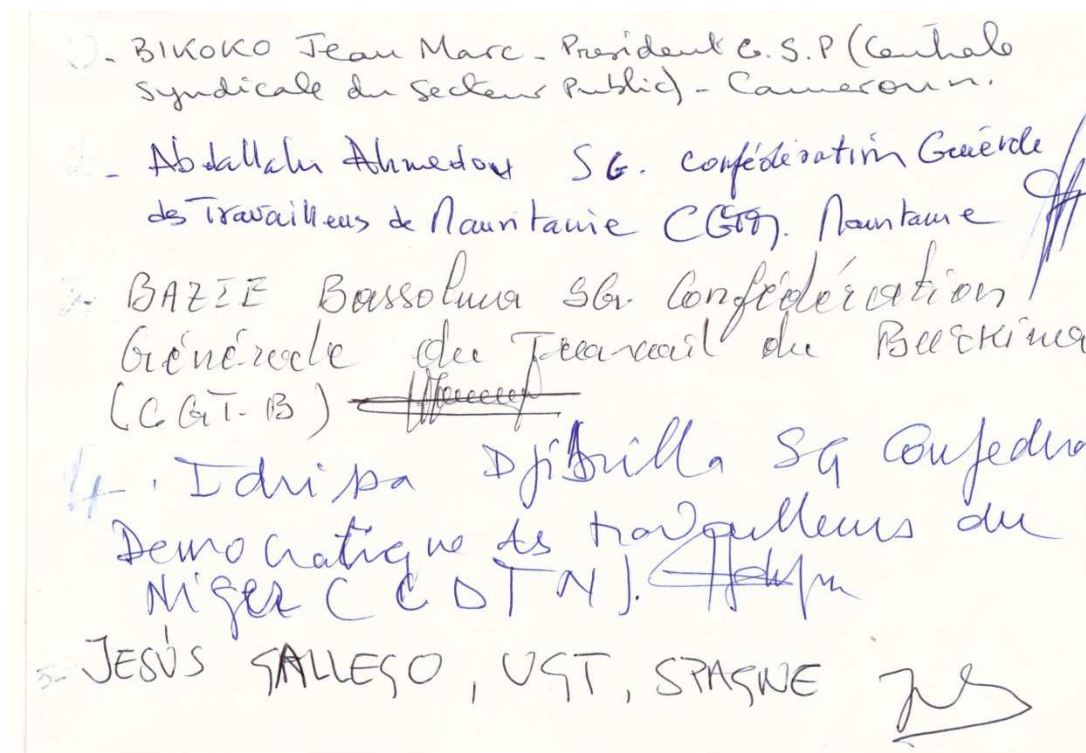 - BIKOKO Jean Marc - President C.S.P (Centrale
Syndicale du Secteur Public) - Cameroun.
- Abdallahi Ahmedou SG. confédération Générale
des Travailleurs de Mauritanie CGTM. Mauritanie
3- BAZIE Bassolma SG. Confédération
Générale du Travail du Burkina
(CGT-B)
4. Idrissa Djibrilla SG Confedera
Democratique des travailleurs du
Niger (CDTN).
5- JESÚS GALLEGO, UGT, SPAGNE